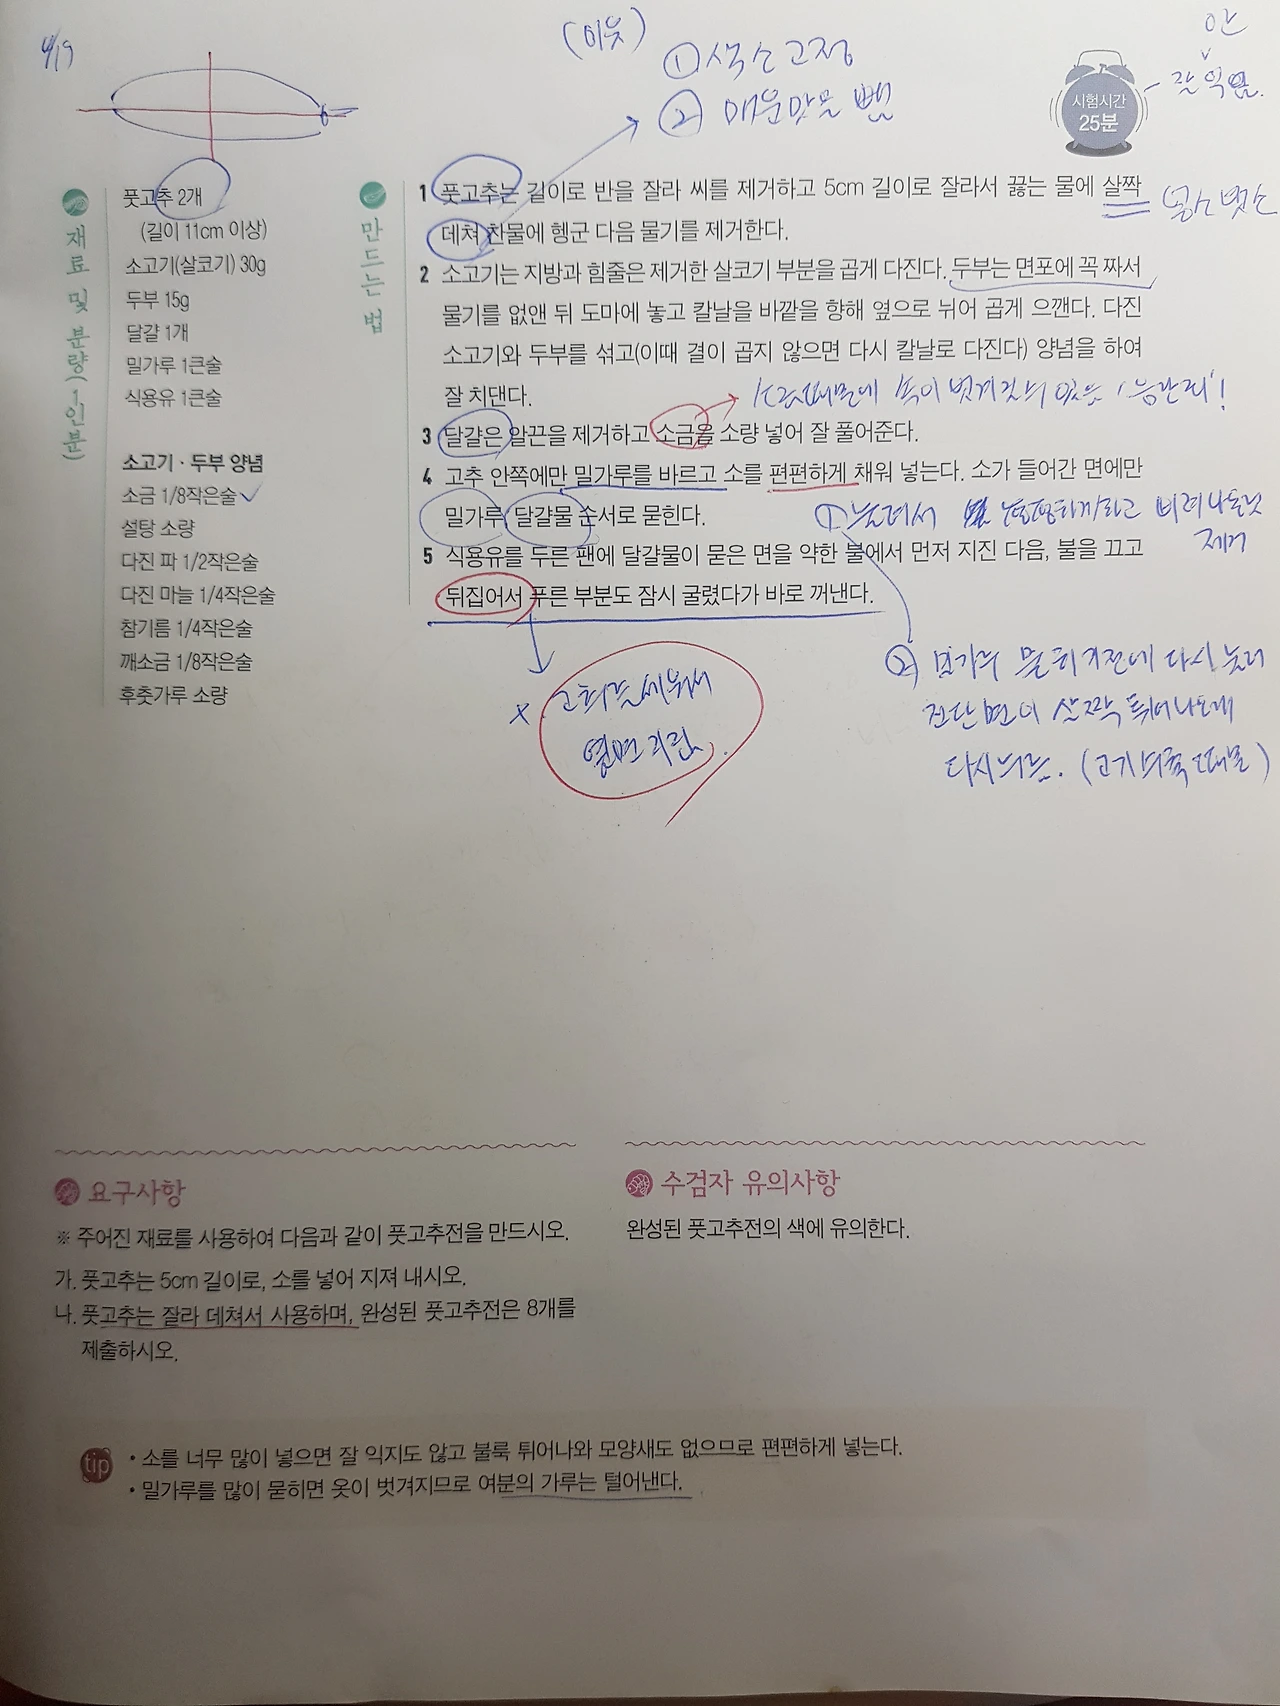 4/19
(이유)
① 색소 고정
② 매운맛을 뺌
안
잘 익음.
시험시간
25분
재료 및 분량(1인분)
풋고추 2개
(길이 11cm 이상)
소고기(살코기) 30g
두부 15g
달걀 1개
밀가루 1큰술
식용유 1큰술
소고기·두부 양념
소금 1/8작은술
설탕 소량
다진 파 1/2작은술
다진 마늘 1/4작은술
참기름 1/4작은술
깨소금 1/8작은술
후춧가루 소량
만드는 법
1 풋고추는 길이로 반을 잘라 씨를 제거하고 5cm 길이로 잘라서 끓는 물에 살짝
데쳐 찬물에 헹군 다음 물기를 제거한다.
2 소고기는 지방과 힘줄은 제거한 살코기 부분을 곱게 다진다. 두부는 면포에 꼭 짜서
물기를 없앤 뒤 도마에 놓고 칼날을 바깥을 향해 옆으로 뉘어 곱게 으깬다. 다진
소고기와 두부를 섞고(이때 결이 곱지 않으면 다시 칼날로 다진다) 양념을 하여
잘 치댄다.
3 달걀은 알끈을 제거하고 소금을 소량 넣어 잘 풀어준다.
4 고추 안쪽에만 밀가루를 바르고 소를 편편하게 채워 넣는다. 소가 들어간 면에만
밀가루, 달걀물 순서로 묻힌다.
① 눌러서
제거
5 식용유를 두른 팬에 달걀물이 묻은 면을 약한 불에서 먼저 지진 다음, 불을 끄고
뒤집어서 푸른 부분도 잠시 굴렸다가 바로 꺼낸다.
② 밀가루 묻히기전에 다시 눌러
살짝 튀어나오게
다시
요구사항
※ 주어진 재료를 사용하여 다음과 같이 풋고추전을 만드시오.
가. 풋고추는 5cm 길이로, 소를 넣어 지져 내시오.
나. 풋고추는 잘라 데쳐서 사용하며, 완성된 풋고추전은 8개를
제출하시오.
수검자 유의사항
완성된 풋고추전의 색에 유의한다.
tip
• 소를 너무 많이 넣으면 잘 익지도 않고 불룩 튀어나와 모양새도 없으므로 편편하게 넣는다.
• 밀가루를 많이 묻히면 옷이 벗겨지므로 여분의 가루는 털어낸다.